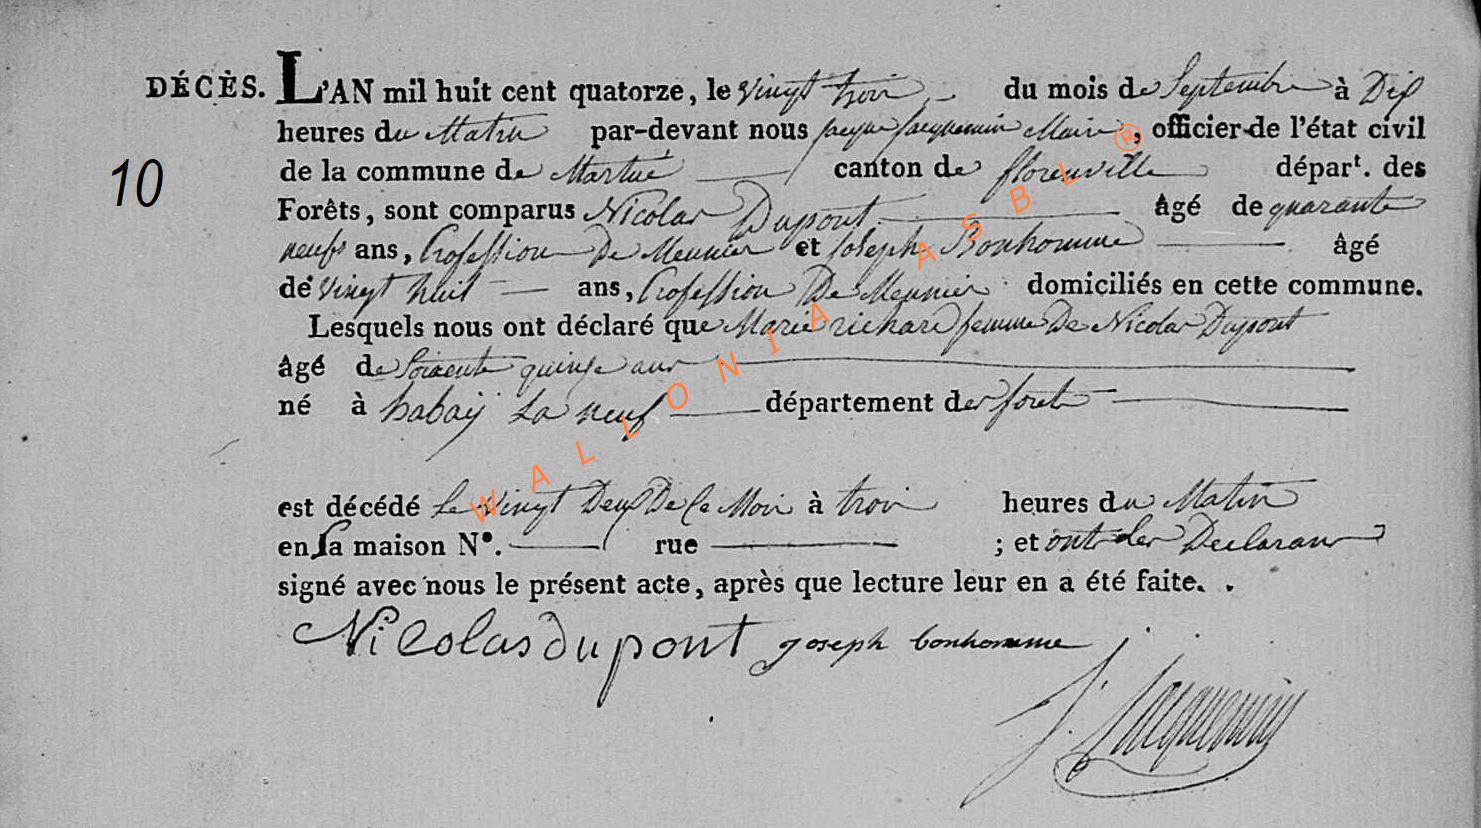 DÉCÈS. L'AN mil huit cent quatorze, le vingt trois du mois de Septembre à Dix
10
heures du Matin par-devant nous jacque jacquemin Maire, officier de l'état civil
de la commune de Martué canton de florenville départ. des
Forêts, sont comparus Nicolas Dupont âgé de quarante
neufs ans, Profession De Meunier et joseph Bonhomme âgé
de vingt huit ans, Profession De Meunier domiciliés en cette commune.
Lesquels nous ont déclaré que Marie richard femme De Nicolas Dupont
âgé de Soixente quinze ans
né à habaÿ La neuf département des forets
est décédé Le vingt Deux De Ce Mois à trois heures du Matin
en Sa maison N°. rue ; et ont les Declarans
signé avec nous le présent acte, après que lecture leur en a été faite. .
Nicolas dupont joseph bonhomme
J. Jacquemin
WALLONIA ASBL ®